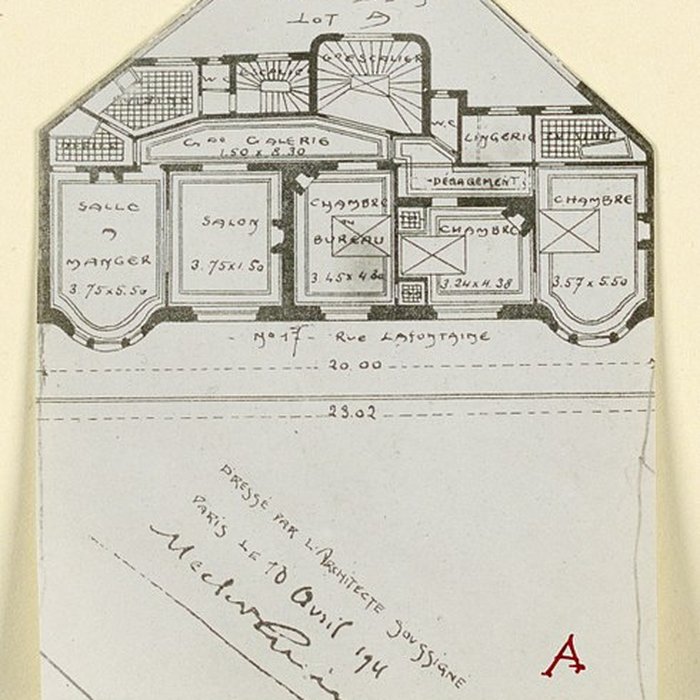 LOT A
Gd ESCALIER
ESCALIER
W.C
CUISINE
W.C
LINGERIE
Gde GALERIE
1.50 x 8.30
DÉGAGEMENT
SALLE
A
MANGER
3.75 x 5.50
SALON
3.75 x 1.50
CHAMBRE
OU
BUREAU
3.45 x 4.80
CHAMBRE
3.24 x 4.38
CHAMBRE
3.57 x 5.50
- No 17 - RUE LAFONTAINE
20.00
23.02
DRESSÉ PAR L'ARCHITECTE SOUSSIGNE
PARIS LE 10 Avril 1911
Hector Guimard
A